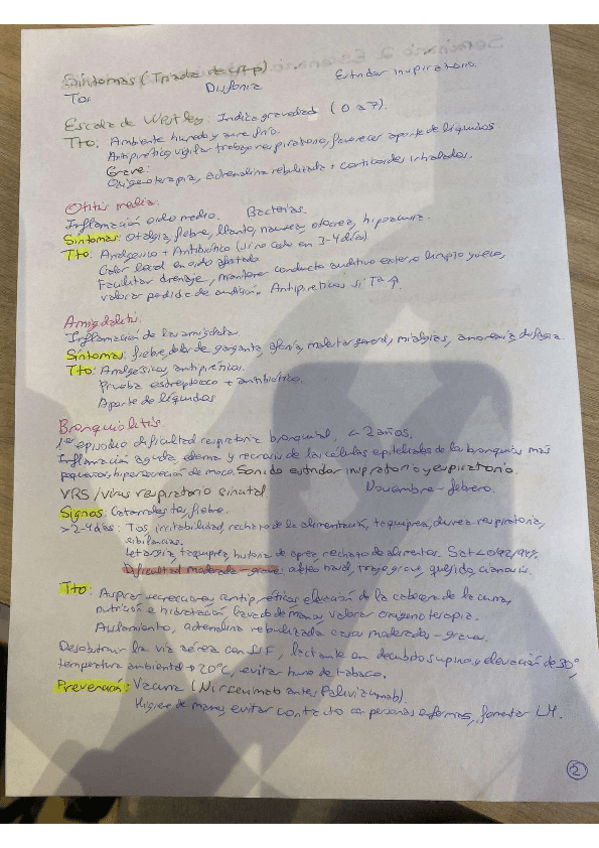 Síntomas (Triada de crup).
Tos Disfonía Estridor inspiratorio.
Escala de Westley: Indica gravedad (0 a 7).
Tto. Ambiente húmedo y aire frío.
Antipirético, vigilar trabajo respiratorio, favorecer aporte de líquidos
Grave:
Oxigenoterapia, adrenalina nebulizada + corticoides inhalados.
Otitis media:
Inflamación oído medio. Bacterias.
Síntomas: Otalgia, fiebre, llanto, nauseas, otorrea, hipoacusia.
Tto: Analgésico + Antibiótico (si no cede en 3-4 días)
Calor local en oído afectado
Facilitar drenaje, mantener conducto auditivo externo limpio y seco,
valorar perdida de audición. Antipiréticos si Tª ↑.
Amigdalitis:
Inflamación de las amígdalas
Síntomas: fiebre, dolor de garganta, afonía, malestar general, mialgias, anorexia, disfagia.
Tto: Analgésicos, antipiréticos.
Prueba estreptococo + antibiótico.
Aporte de líquidos
Bronquiolitis:
1er episodio dificultad respiratoria bronquial, < 2 años.
Inflamación aguda, edema y necrosis de las células epiteliales de los bronquios más
pequeños, hipersecreción de moco. Sonido estridor inspiratorio y espiratorio.
VRS / virus respiratorio sincitial. Noviembre - febrero.
Signos: Catarro, tos, fiebre.
>2-4 días: Tos, irritabilidad, rechazo de la alimentación, taquipnea, respiratoria,
sibilancias.
Letargia, taquipnea, historia de apnea, rechazo de alimentos. Sat <
Dificultad moderada - grave: aleteo nasal, tiraje grave, quejido, cianosis.
Tto: Aspirar secreciones, antipiréticos, elevación de la cabecera de la cuna,
nutrición e hidratación, lavado de manos, valorar oxigenoterapia.
Aislamiento, adrenalina nebulizada casos moderados - graves.
Desobstruir la vía aérea con SSF, lactante en decúbito supino y elevación de 30°,
temperatura ambiental 20°C, evitar humo de tabaco.
Prevención: Vacuna (Nirsevimab antes Palivizumab).
Higiene de manos, evitar contacto con personas enfermas, fomentar LM.
2